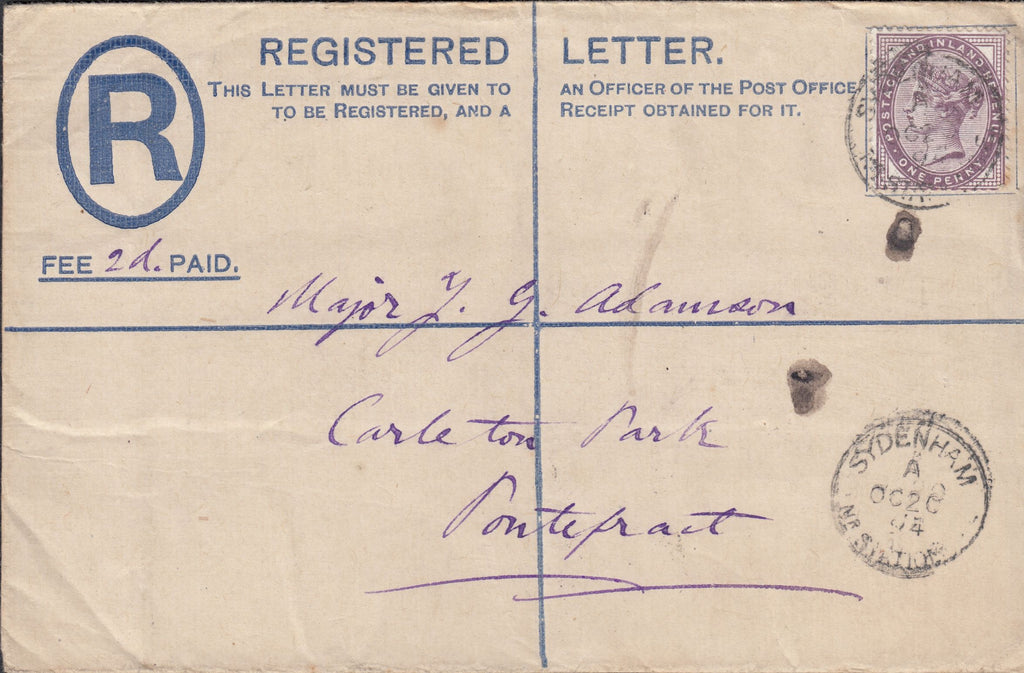 REGISTERED LETTER.
THIS LETTER MUST BE GIVEN TO AN OFFICER OF THE POST OFFICE
TO BE REGISTERED, AND A RECEIPT OBTAINED FOR IT.
R
FEE 2d. PAID.
POSTAGE AND INLAND REVENUE
ONE PENNY
Major J. G. Adamson
Carleton Park
Pontefract
SYDENHAM
A
OC 26
94
NR STATION